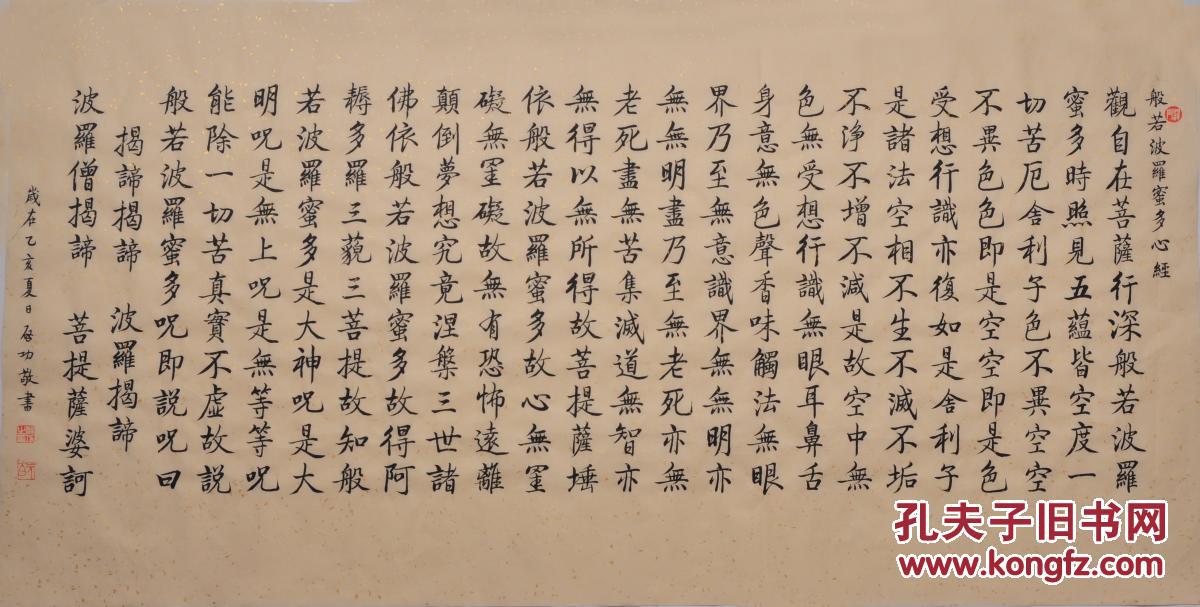 般若波羅蜜多心經
觀自在菩薩行深般若波羅
蜜多時照見五蘊皆空度一
切苦厄舍利子色不異空空
不異色色即是空空即是色
受想行識亦復如是舍利子
是諸法空相不生不滅不垢
不淨不增不減是故空中無
色無受想行識無眼耳鼻舌
身意無色聲香味觸法無眼
界乃至無意識界無無明亦
無無明盡乃至無老死亦無
老死盡無苦集滅道無智亦
無得以無所得故菩提薩埵
依般若波羅蜜多故心無罣
礙無罣礙故無有恐怖遠離
顛倒夢想究竟涅槃三世諸
佛依般若波羅蜜多故得阿
耨多羅三藐三菩提故知般
若波羅蜜多是大神呪是大
明呪是無上呪是無等等呪
能除一切苦真實不虛故説
般若波羅蜜多呪即説呪曰
揭諦揭諦 波羅揭諦
波羅僧揭諦 菩提薩婆訶
歲在乙亥夏日啟功敬書
孔夫子旧书网
www.kongfz.com